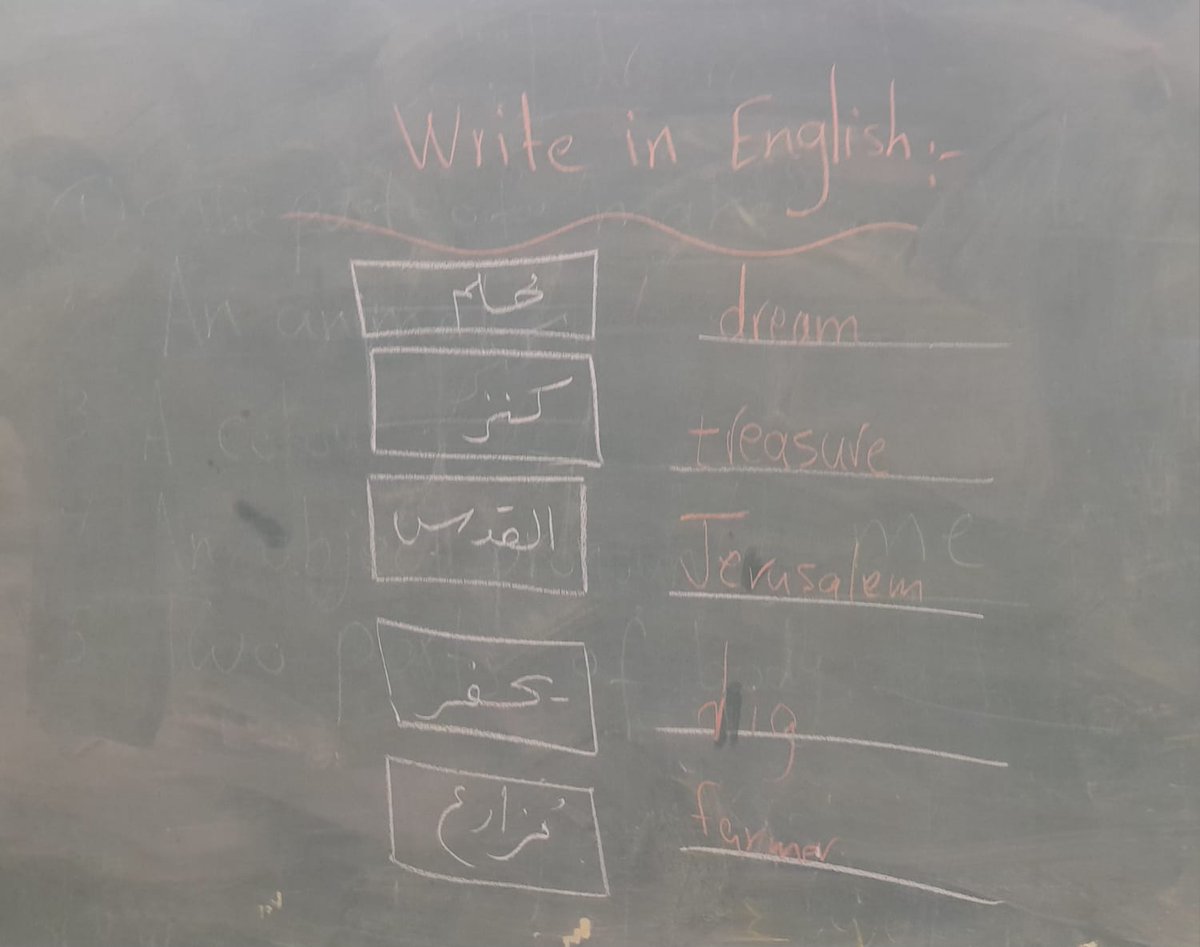 Write in English:-
حلم dream
كنز treasure
القدس Jerusalem
يحفر dig
مزارع farmer